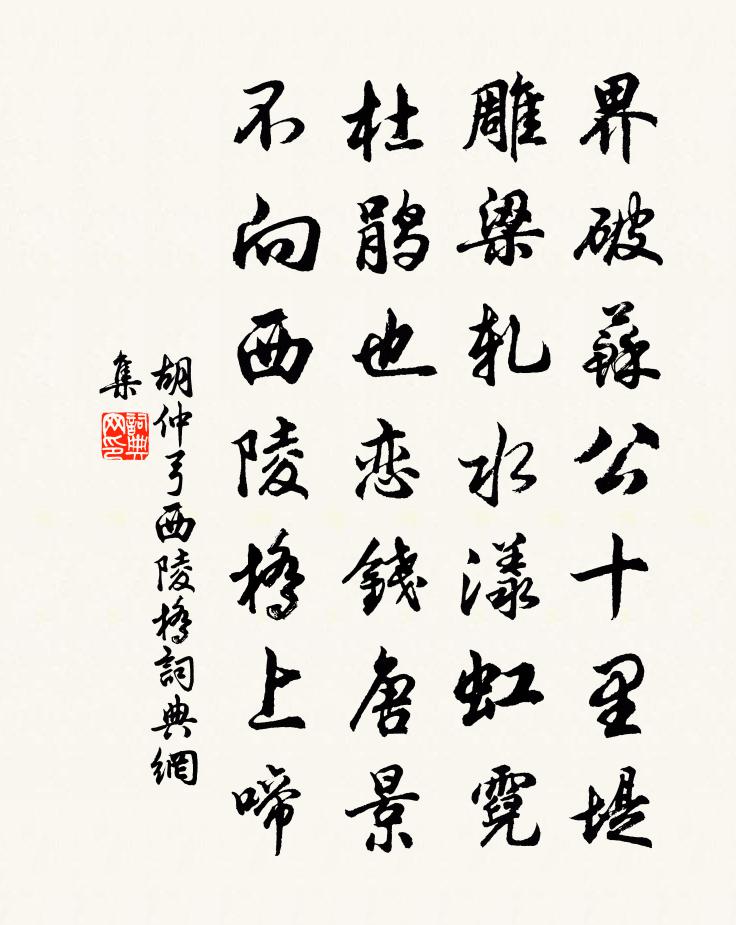 界破蘇公十里堤
雕梁軋水漾虹霓
杜鹃也恋錢唐景
不向西陵橋上啼
胡仲弓西陵橋詞典網
集
詞典网印